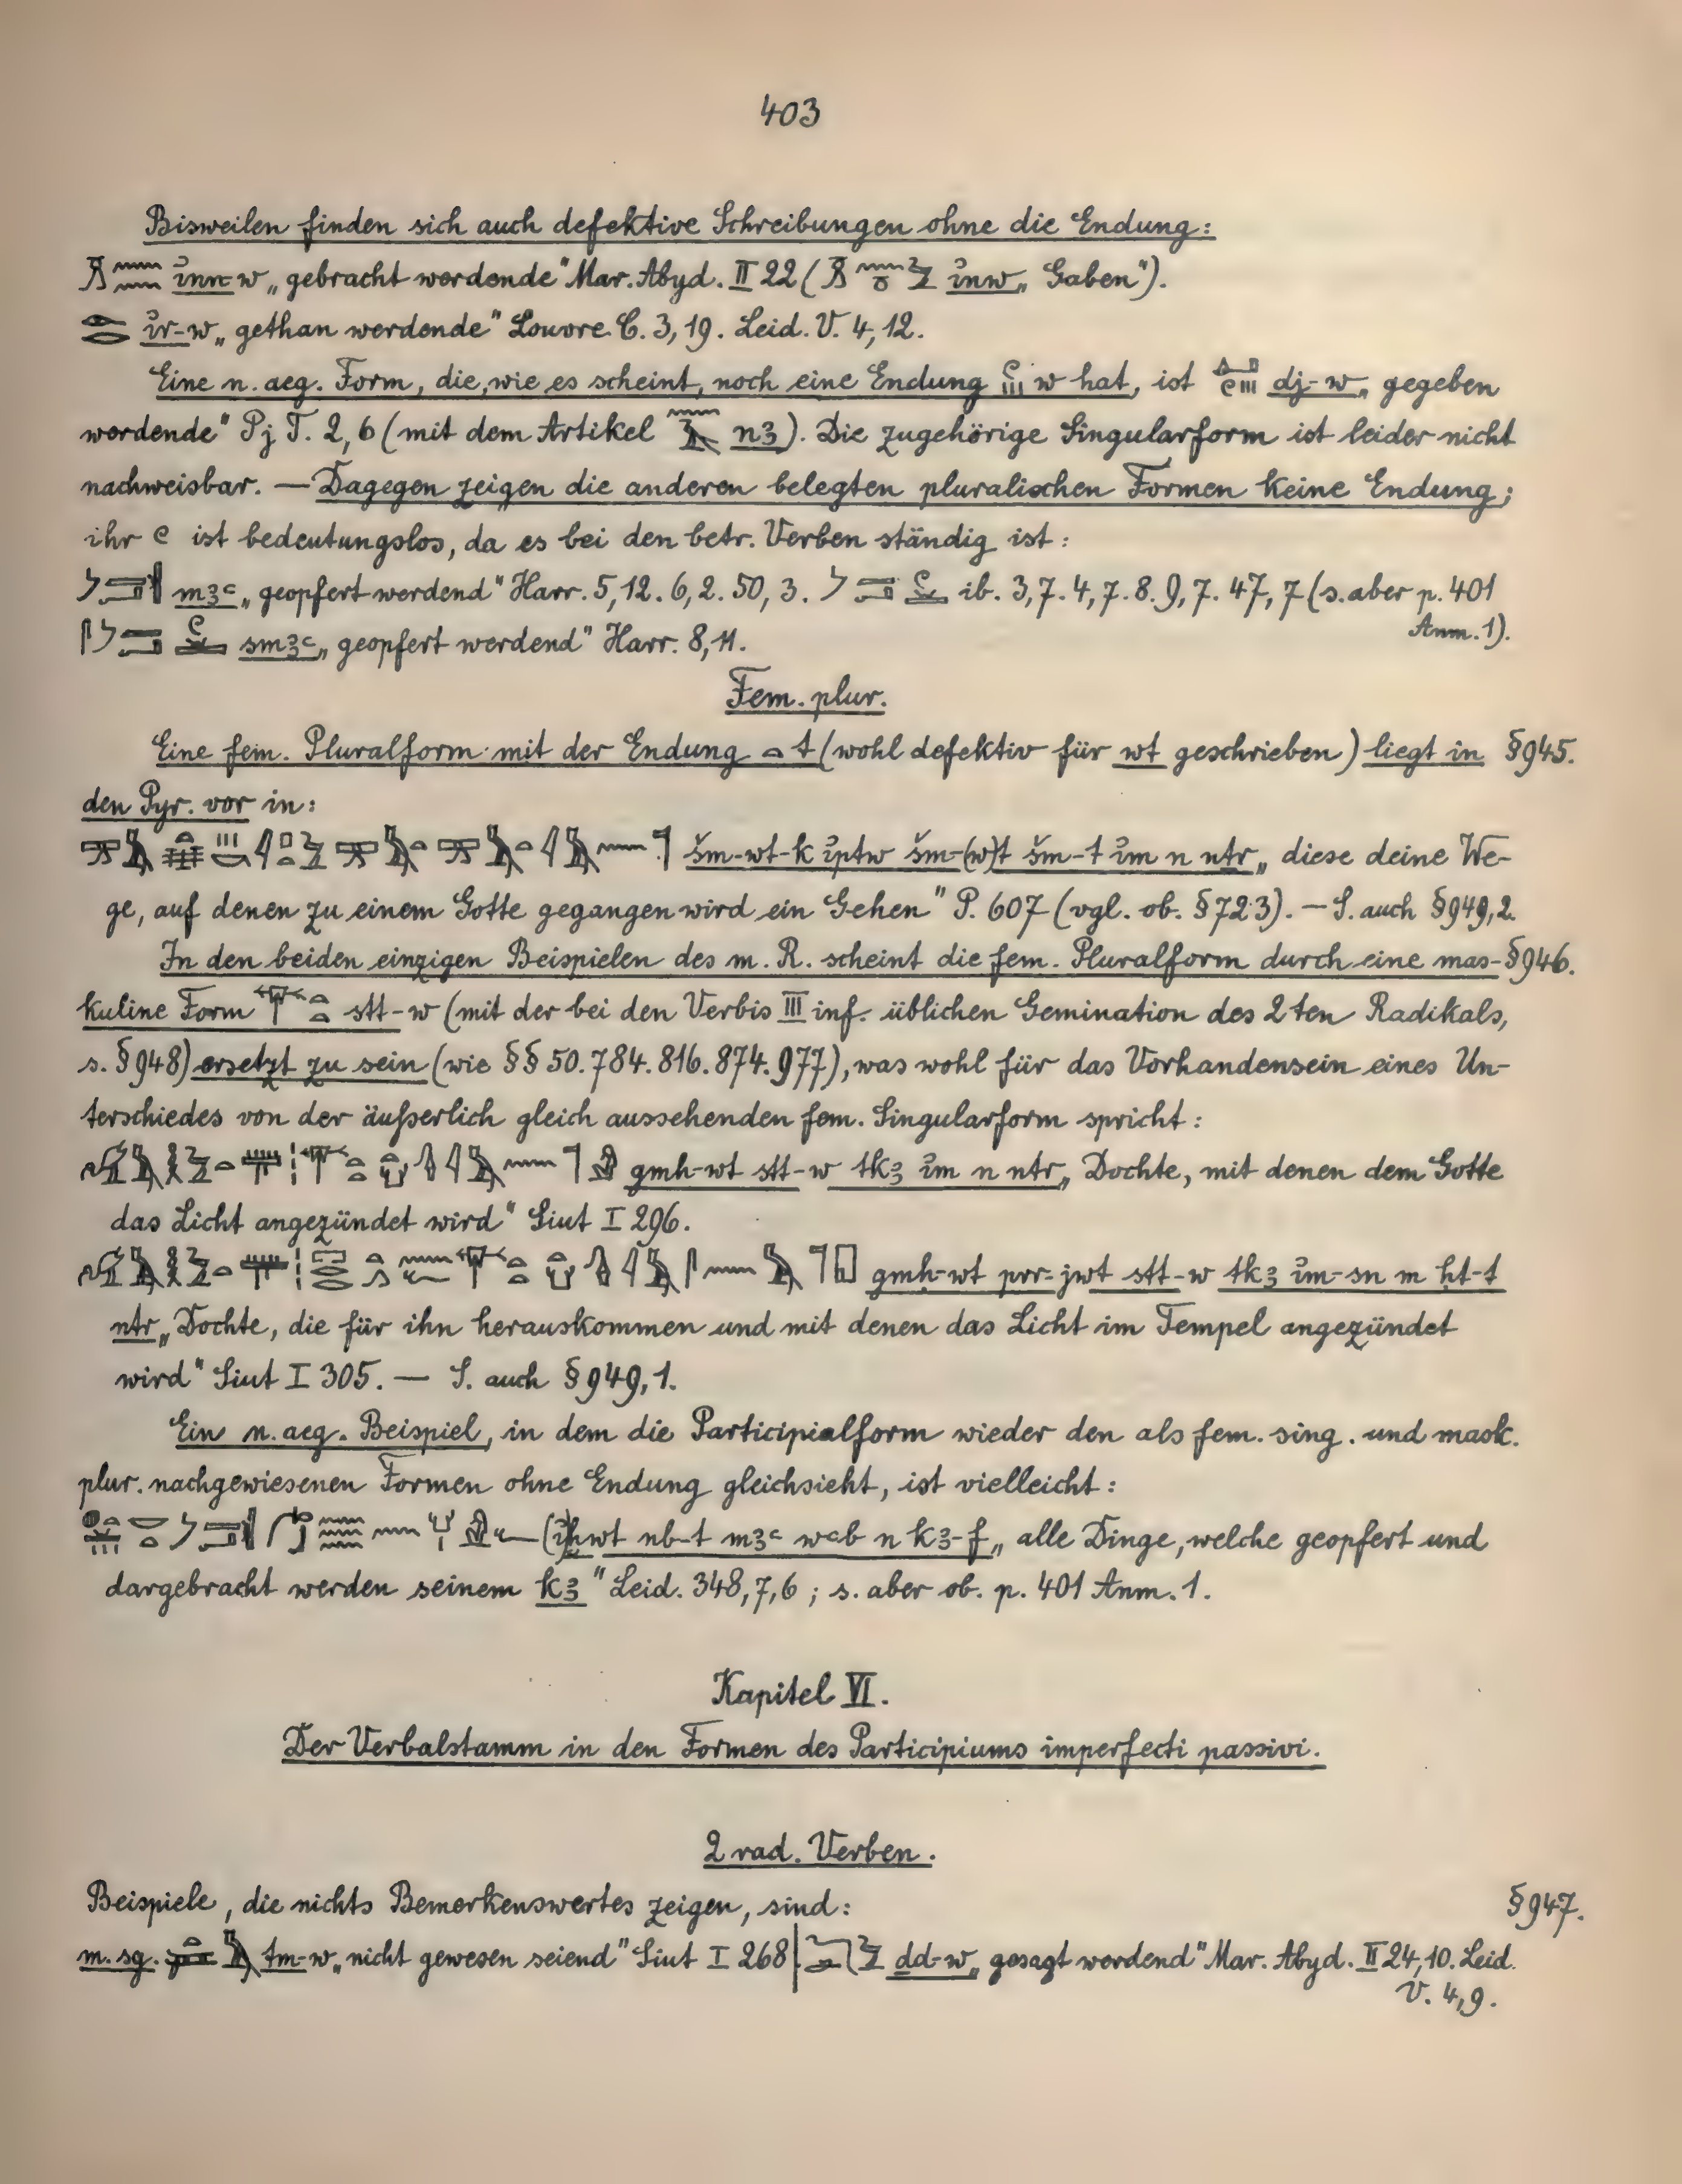 403
Bisweilen finden sich auch defektive Schreibungen ohne die Endung:
i҆nn-w „gebracht werdende" Mar. Abyd. II 22 ( i҆nw „Gaben").
i҆r-w „gethan werdende" Louvre C. 3, 19. Leid. V. 4, 12.
Eine n. aeg. Form, die, wie es scheint, noch eine Endung w hat, ist dj-w „gegeben
werdende" Pj T. 2, 6 (mit dem Artikel nꜣ). Die zugehörige Singularform ist leider nicht
nachweisbar. — Dagegen zeigen die anderen belegten pluralischen Formen keine Endung;
ihr ist bedeutungslos, da es bei den betr. Verben ständig ist:
mꜣꜥ „geopfert werdend" Harr. 5, 12. 6, 2. 50, 3. ib. 3, 7. 4, 7. 8. 9, 7. 47, 7 (s. aber p. 401
Anm. 1).
smꜣꜥ „geopfert werdend" Harr. 8, 11.
Fem. plur.
Eine fem. Pluralform mit der Endung t (wohl defektiv für wt geschrieben) liegt in §945.
den Pyr. vor in:
šm-wt-k i҆ptw šm-(w)t šm-t i҆m n nṯr „diese deine We-
ge, auf denen zu einem Gotte gegangen wird ein Gehen" P. 607 (vgl. ob. §723). — S. auch §949, 2.
In den beiden einzigen Beispielen des m. R. scheint die fem. Pluralform durch eine mas- §946.
kuline Form stt-w (mit der bei den Verbis III inf. üblichen Gemination des 2ten Radikals,
s. §948) ersetzt zu sein (wie §§ 50. 784. 816. 874. 977), was wohl für das Vorhandensein eines Un-
terschiedes von der äußerlich gleich aussehenden fem. Singularform spricht:
gmḥ-wt stt-w tkꜣ i҆m n nṯr „Dochte, mit denen dem Gotte
das Licht angezündet wird" Siut I 296.
gmḥ-wt prr-jwt stt-w tkꜣ i҆m-sn m ḥt-t
nṯr „Dochte, die für ihn herauskommen und mit denen das Licht im Tempel angezündet
wird" Siut I 305. — S. auch §949, 1.
Ein n. aeg. Beispiel, in dem die Participialform wieder den als fem. sing. und mask.
plur. nachgewiesenen Formen ohne Endung gleichsieht, ist vielleicht:
(i҆)ḫwt nb-t mꜣꜥ wꜥb n kꜣ-f „alle Dinge, welche geopfert und
dargebracht werden seinem kꜣ" Leid. 348, 7, 6 ; s. aber ob. p. 401 Anm. 1.
Kapitel VI.
Der Verbalstamm in den Formen des Participiums imperfecti passivi.
2 rad. Verben.
Beispiele, die nichts Bemerkenswertes zeigen, sind: §947.
m. sg. tm-w „nicht gewesen seiend" Siut I 268 | ḏd-w „gesagt werdend" Mar. Abyd. II 24, 10. Leid.
V. 4, 9.